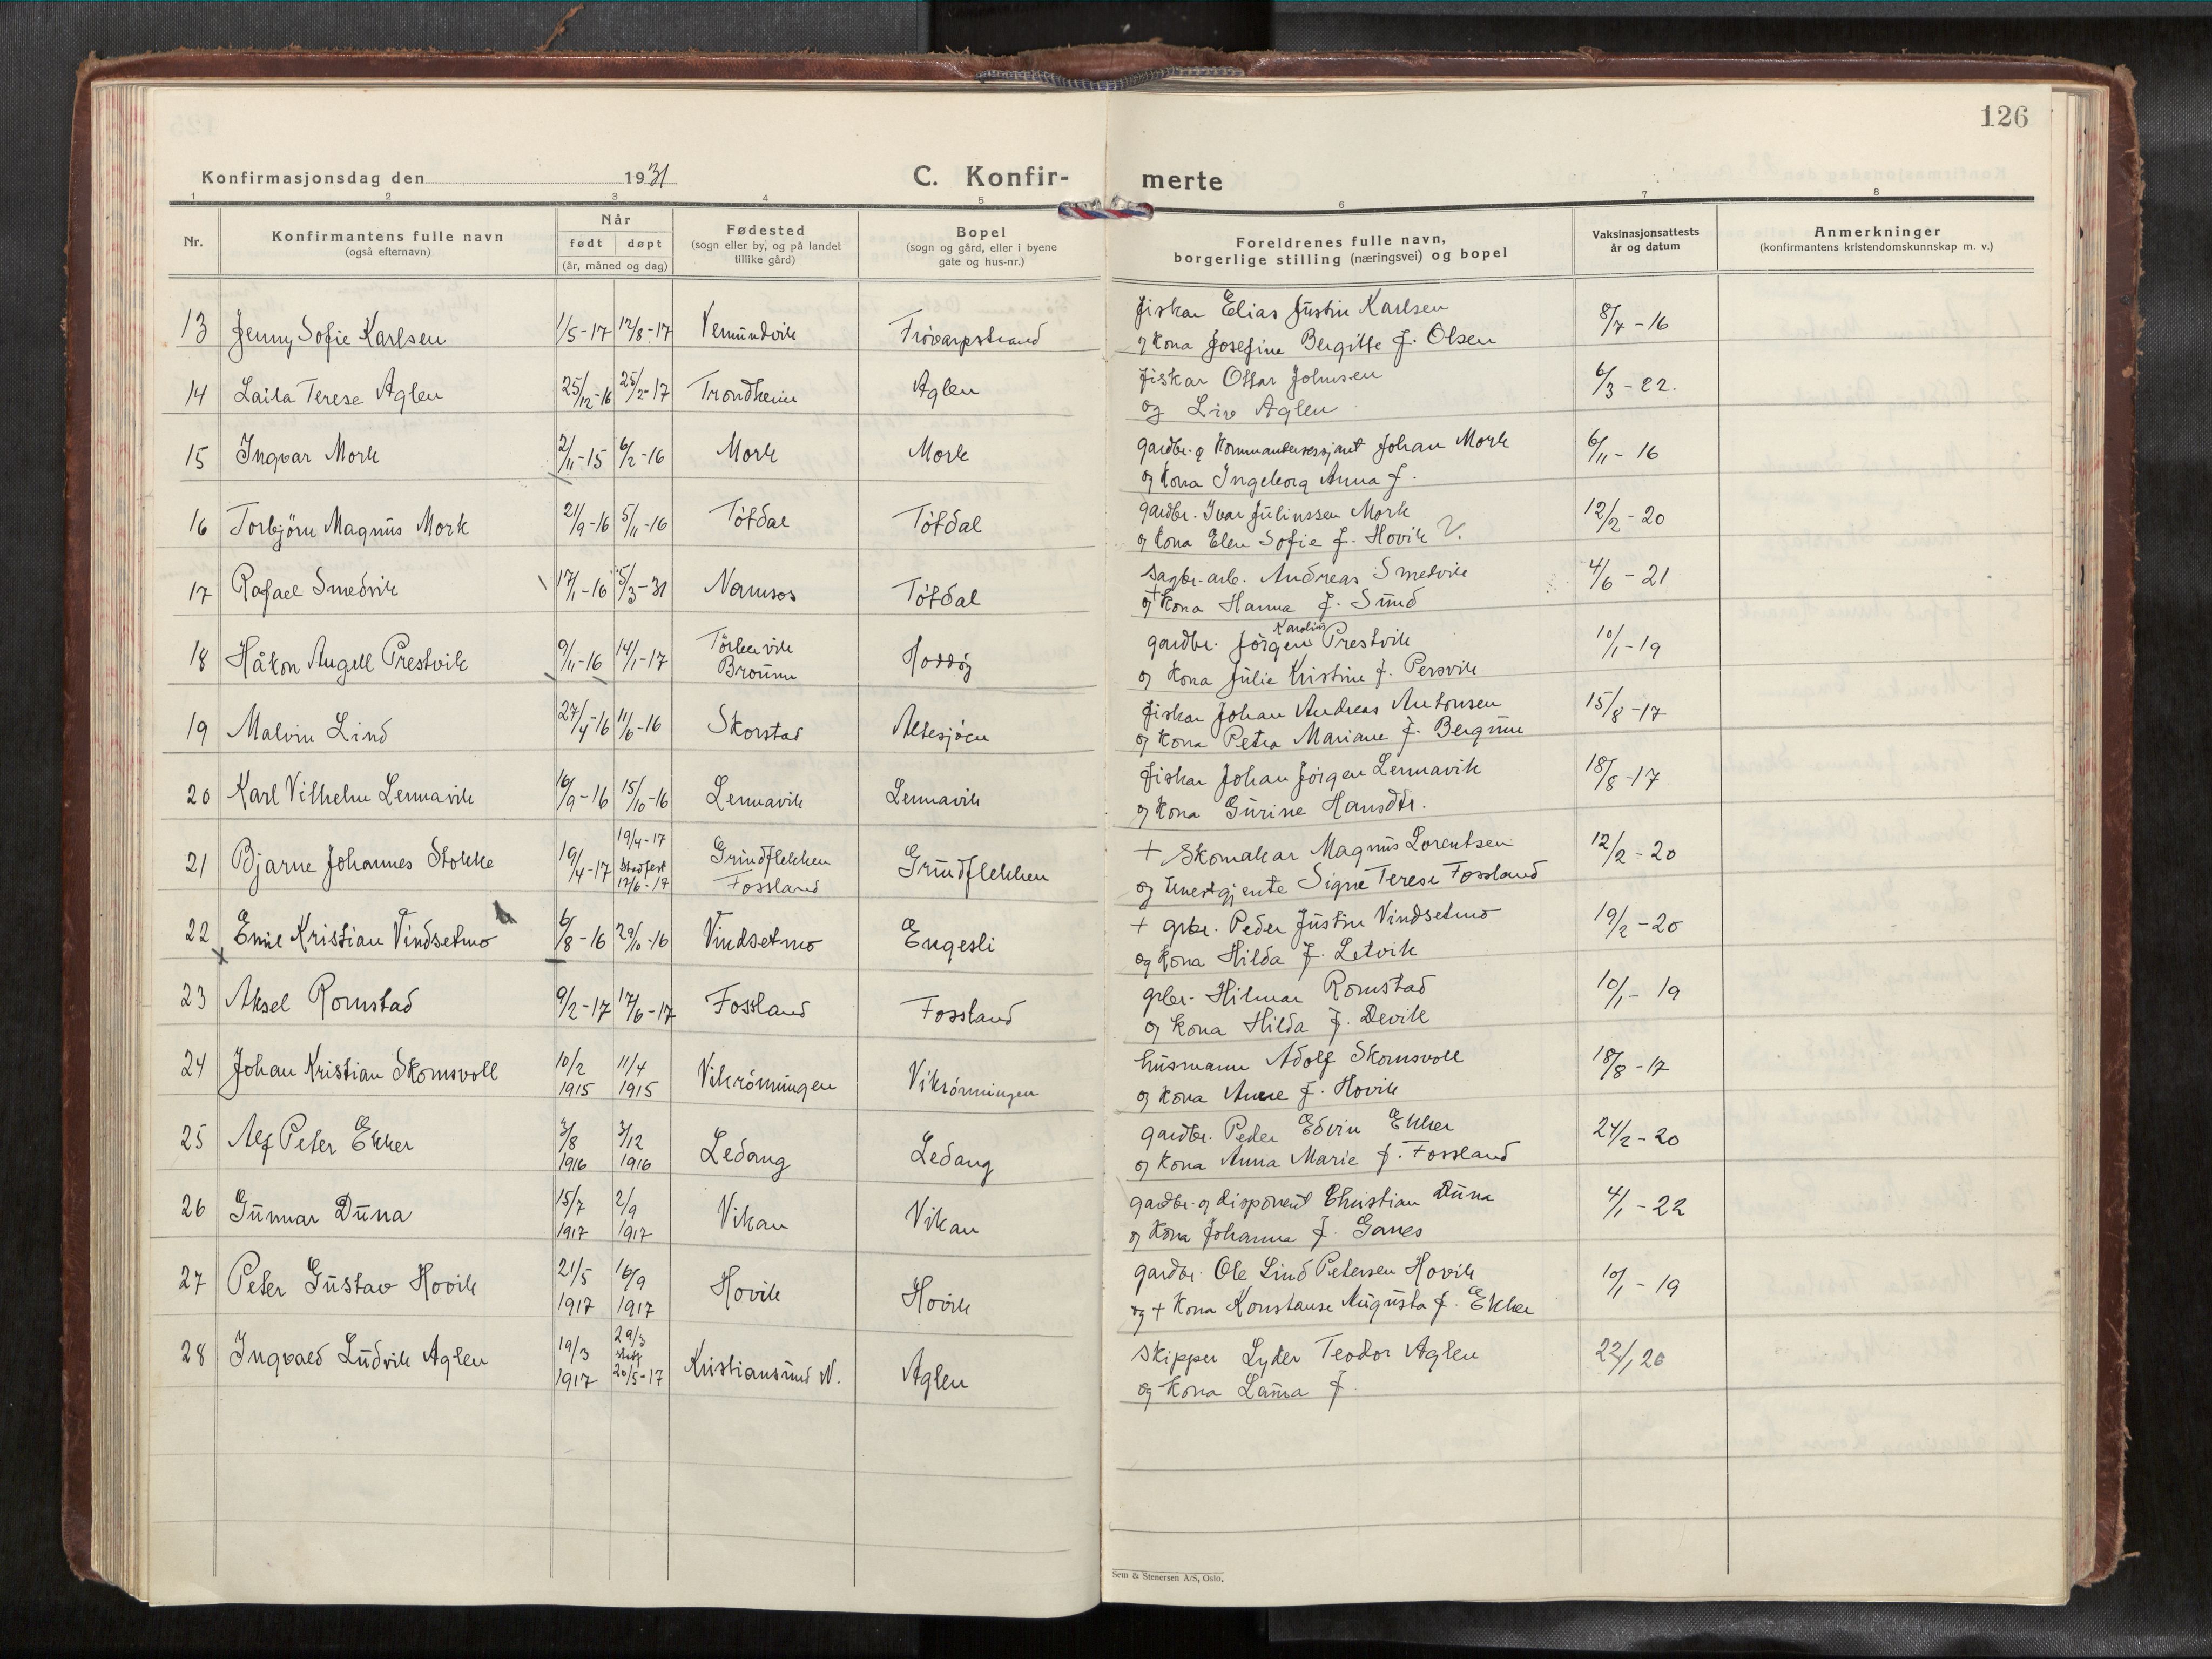 126
Konfirmasjonsdag den 1931 C. Konfir- merte
1 2 3 4 5 6 7 8
Nr.
Konfirmantens fulle navn
(også efternavn)
Når
født døpt
(år, måned og dag)
Fødested
(sogn eller by, og på landet
tillike gård)
Bopel
(sogn og gård, eller i byene
gate og hus-nr.)
Foreldrenes fulle navn,
borgerlige stilling (næringsvei) og bopel
Vaksinasjonsattests
år og datum
Anmerkninger
(konfirmantens kristendomskunnskap m. v.)
13 Jenny Sofie Karlsen 1/5-17 12/8-17 Vemundvik Frövarpstrand Fiskar Elias Justin Karlsen 8/7-16
og kona Josefine Bergitte f. Olsen
14 Laila Terese Aglen 25/12-16 25/2-17 Trondheim Aglen Fiskar Ottar Johnsen 6/3-22.
og Liv Aglen
15 Ingvar Mork 2/11-15 6/2-16 Mork Mork gardbr. og Kommandersersjant Johan Mork 6/11-16
og kona Ingeborg Anna f.
16 Torbjörn Magnus Mork 21/9-16 5/11-16 Tötdal Tötdal gardbr. Ivar Julinssen Mork 12/2-20
og kona Elen Sofie f. Hovik V.
17 Rafael Smedvik 17/1-16 5/3-31 Namsos Tötdal Sagbr-arb. Andreas Smetvik 4/6-21
og + kona Hanna f. Sund
18 Håkon Angell Prestvik 9/11-16 14/1-17 Törkervik Hoddöy gardbr. Jörgen Karolius Prestvik 10/1-19
Broum og kona Julie Kristine f. Persvik
19 Malvin Lind 27/4-16 11/6-16 Skorstad Altesjöen Fiskar Johan Andreas Antonsen 15/8-17
og kona Petra Mariane f. Bergum
20 Karl Vilhelm Lennavik 16/9-16 15/10-16 Lennavik Lennavik Fiskar Johan Jörgen Lennavik 18/8-17
og kona Gurine Hansdtr.
21 Bjarne Johannes Stokke 19/4-17 19/4-17 Grundflekken Grundflekken + Skomakar Magnus Lorentsen 12/2-20
Stadfest
17/6-17 Fossland og tenestgjente Signe Terese Fossland
22 Emil Kristian Vindsetmo 6/8-16 29/10-16 Vindsetmo Engesli + grbr. Peder Justin Vindsetmo 19/2-20
x og kona Hilda f. Letvik
23 Aksel Romstad 9/2-17 17/6-17 Fossland Fossland grbr. Hilmar Romstad 10/1-19
og kona Hilda f. Devik
24 Johan Kristian Skomsvoll 10/2 11/4 Vikrönningen Vikrönningen husmann Adolf Skomsvoll 18/8-17
1915 1915 og kona Anne f. Hovik
25 Alf Peter Ekker 3/8 3/12 Ledang Ledang gardbr. Peder Edvin Ekker 24/2-20
1916 1916 og kona Anna Marie f. Fossland
26 Gunnar Duna 15/7 2/9 Vikan Vikan gardbr. og disponent Christian Duna 4/1-22
1917 1917 og kona Johanna f. Ganes
27 Peter Gustav Hovik 21/5 16/9 Hovik Hovik gardbr. Ole Lind Petersen Hovik 10/1-19
1917 1917 og + kona Konstanse Augusta f. Ekker
28 Ingvald Ludvik Aglen 19/3 29/3 Kristiansund N. Aglen Skipper Lyder Teodor Aglen 22/1 20
1917 stadf 20/5-17 og kona Laura f.
Sem & Stenersen A/S, Oslo.